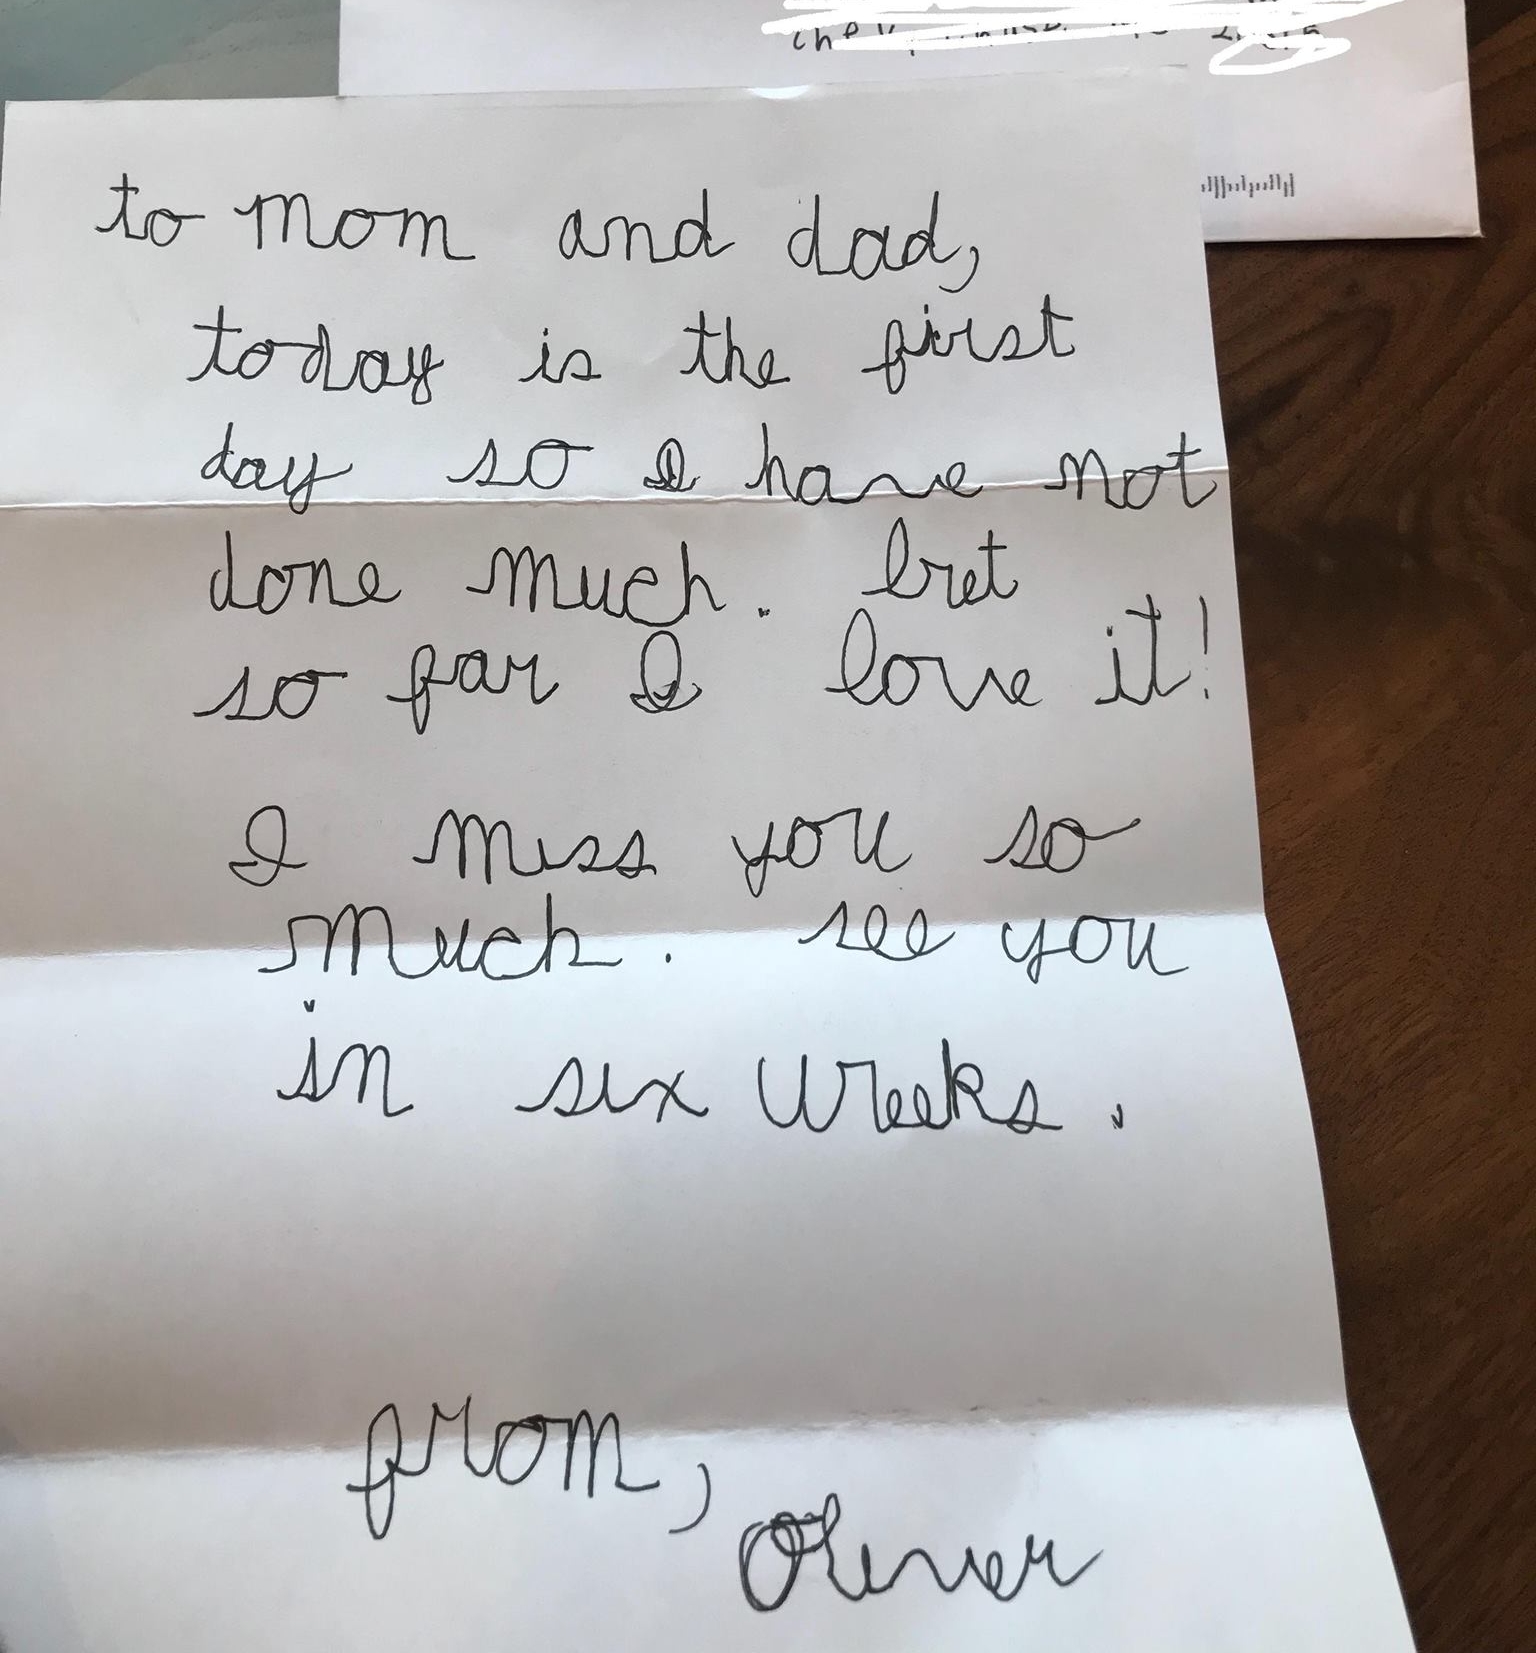 to mom and dad,
today is the first
day so I have not
done much. but
so far I love it!
I miss you so
much. see you
in six weeks.
from,
Oliver